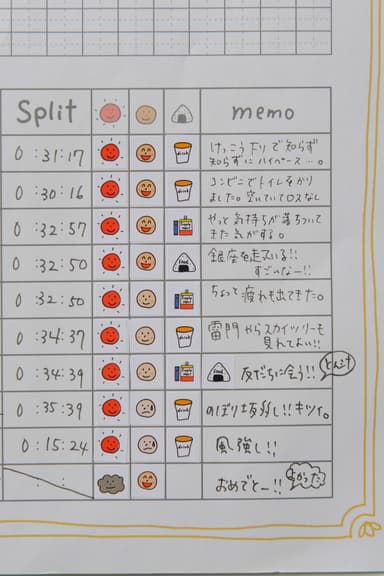 Split memo
0:31:17 drink けっこう下りで知らず
知らずにハイペース…。
0:30:16 drink コンビニでトイレをかり
ました。空いていてロスなし
0:32:57 やっと気持ちが落ちついて
きた気がする。
0:32:50 Food 銀座を走ってる!!
すごいなー!!
0:32:50 ちょっと疲れも出てきた。
0:34:37 drink 雷門からスカイツリーも
見れてよい!!
0:34:39 Food 友だちに会う!!
0:35:39 drink のぼり坂 多し!!キツイ。
0:15:24 drink 風強し!!
: : おめでとー!! よかった